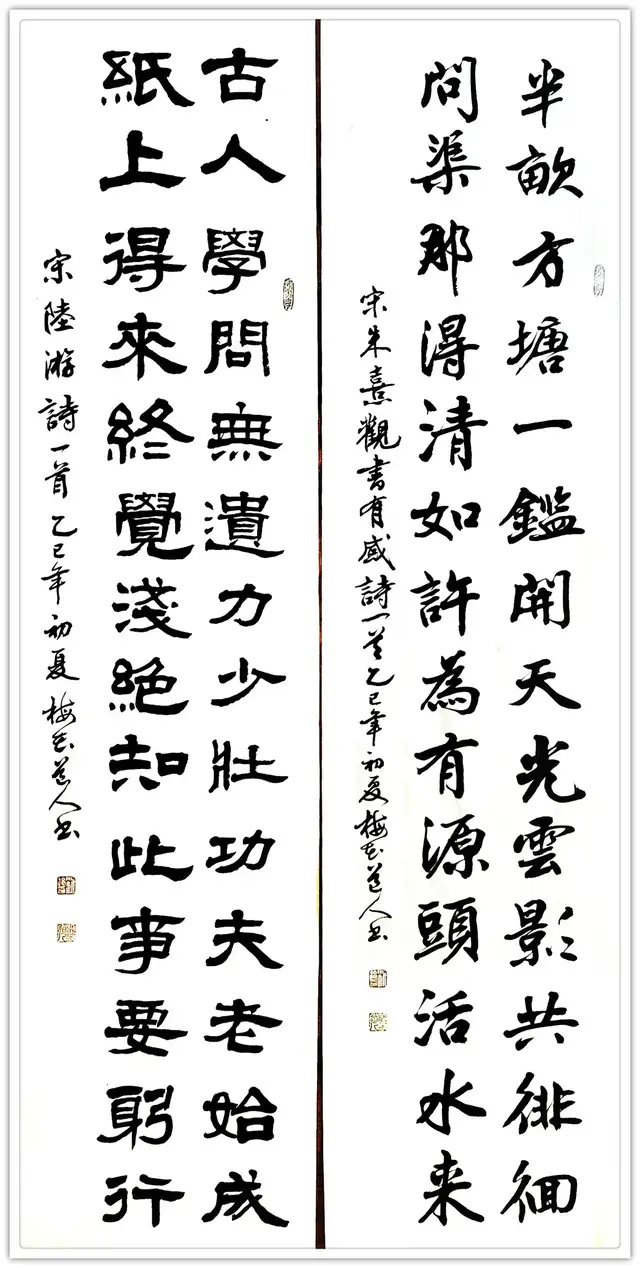 半畝方塘一鑑開天光雲影共徘徊
問渠那得清如許為有源頭活水来
宋朱熹觀書有感詩一首乙巳年初夏梅花道人书
古人學問無遺力少壯功夫老始成
紙上得來終覺淺絕知此事要躬行
宋陸游詩一首乙巳年初夏梅花道人书